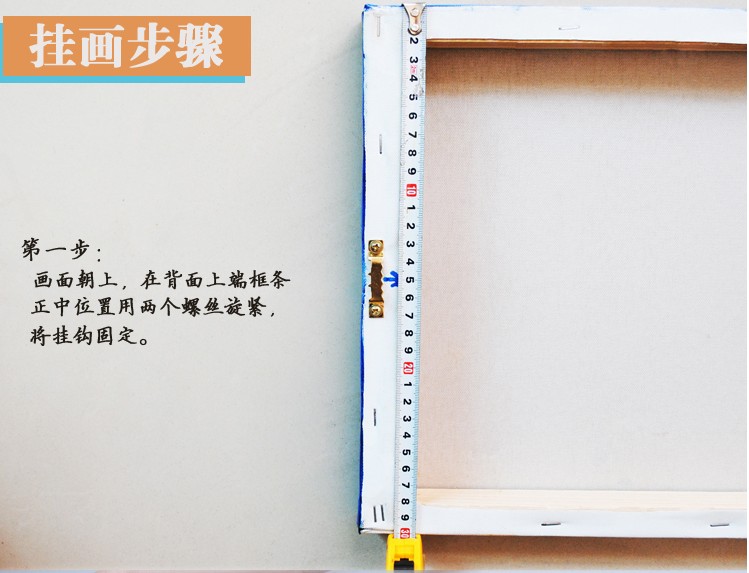 挂画步骤
第一步：
画面朝上，在背面上端框条
正中位置用两个螺丝旋紧，
将挂钩固定。
2
3
4
5
6
7
8
9
10
1
2
3
4
5
6
7
8
9
20
1
2
3
4
5
6
7
8
9
30